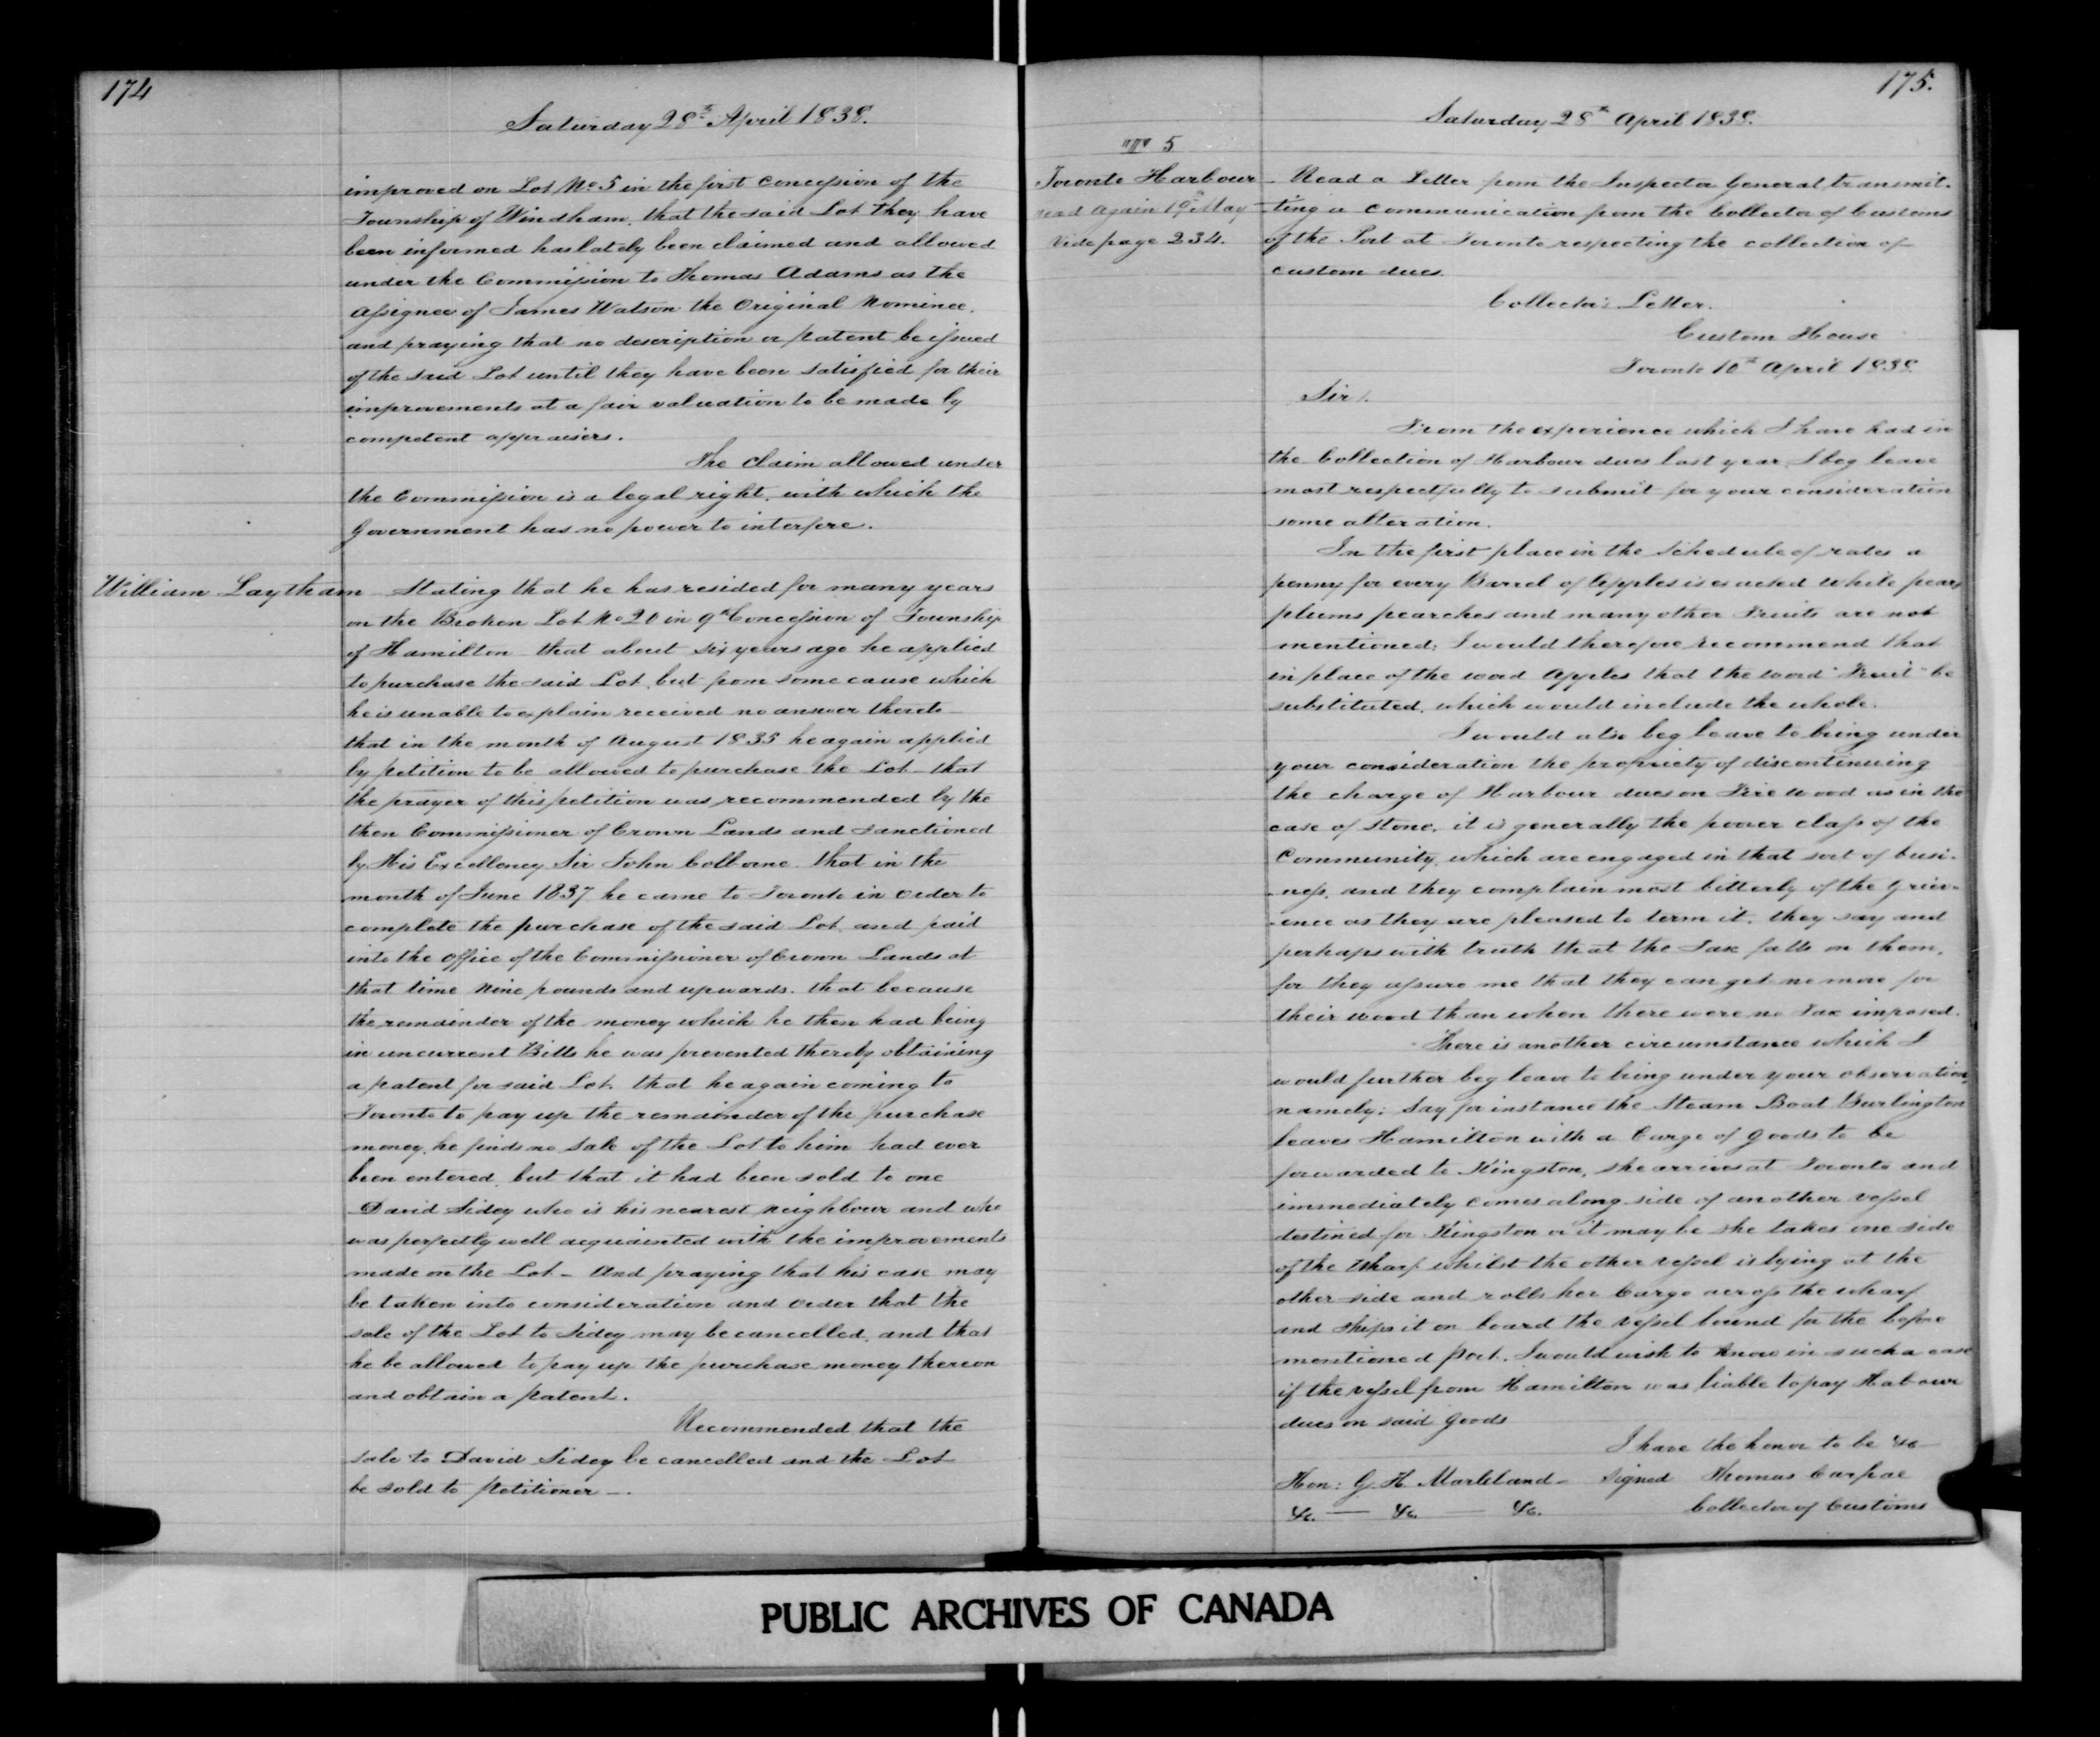 174
Saturday 28th April 1838.
improved on Lot No 5 in the first Concession of the
Township of Windham, that the said Lot they have
been informed has lately been claimed and allowed
under the Commission to Thomas Adams as the
Assignee of James Watson the Original Nominee,
and praying that no description or Patent be issued
of the said Lot until they have been satisfied for their
improvements at a fair valuation to be made by
competent appraisers.
The claim allowed under
the Commission is a legal right, with which the
Government has no power to interfere.
William Laytham - Stating that he has resided for many years
on the Broken Lot No 20 in 9th Concession of Township
of Hamilton that about six years ago he applied
to purchase the said Lot, but from some cause which
he is unable to explain received no answer thereto
that in the month of August 1835 he again applied
by petition to be allowed to purchase the Lot - that
the prayer of this petition was recommended by the
then Commissioner of Crown Lands and sanctioned
by His Excellency Sir John Colborne that in the
month of June 1837 he came to Toronto in order to
complete the purchase of the said Lot and paid
into the office of the Commissioner of Crown Lands at
that time Nine pounds and upwards. that because
the remainder of the money which he then had being
in uncurrent Bills he was prevented thereby obtaining
a Patent for said Lot. that he again coming to
Toronto to pay up the remainder of the purchase
money, he finds no Sale of the Lot to him had ever
been entered, but that it had been sold to one
David Sidey who is his nearest neighbour and who
was perfectly well acquainted with the improvements
made on the Lot - And praying that his case may
be taken into consideration and order that the
sale of the Lot to Sidey may be cancelled, and that
he be allowed to pay up the purchase money thereon
and obtain a Patent.
Recommended that the
sale to David Sidey be cancelled and the Lot
be sold to Petitioner -.
175.
Saturday 28th April 1838.
5
Toronto Harbour
read again 19th May
Vide page 234.
- Read a Letter from the Inspector General transmit-
ting a Communication from the Collector of Customs
of the Port at Toronto respecting the collection of
custom dues.
Collector's Letter.
Custom House
Toronto 10th April 1838.
Sir,
From the experience which I have had in
the Collection of Harbour dues last year, I beg leave
most respectfully to submit for your consideration
some alteration.
In the first place in the Schedule of rates a
penny for every Barrel of Apples is exacted while pears
plums pearches and many other Fruits are not
mentioned; I would therefore recommend that
in place of the word Apples that the word "Fruit" be
substituted, which would include the whole.
I would also beg leave to bring under
your consideration the propriety of discontinuing
the charge of Harbour dues on Fire wood as in the
case of Stone, it is generally the poorer class of the
Community, which are engaged in that sort of busi-
ness, and they complain most bitterly of the griev-
-ence as they are pleased to term it, they say and
perhaps with truth that the Tax falls on them,
for they assure me that they can get no more for
their wood than when there were no Tax imposed.
There is another circumstance which I
would further beg leave to bring under your observation,
namely; Say for instance the Steam Boat Burlington
leaves Hamilton with a Cargo of goods to be
forwarded to Kingston, she arrives at Toronto and
immediately comes along side of another vessel
destined for Kingston or it may be she takes one side
of the Wharf whilst the other vessel is lying at the
other side and rolls her Cargo across the wharf
and ships it on board the vessel bound for the before
mentioned Port. I would wish to know in such a case
if the vessel from Hamilton was liable to pay Habour
dues on said goods
I have the honor to be &c
Hon: G. H. Markland - Signed Thomas Carfrae
&c. — &c. — &c. Collector of Customs
PUBLIC ARCHIVES OF CANADA